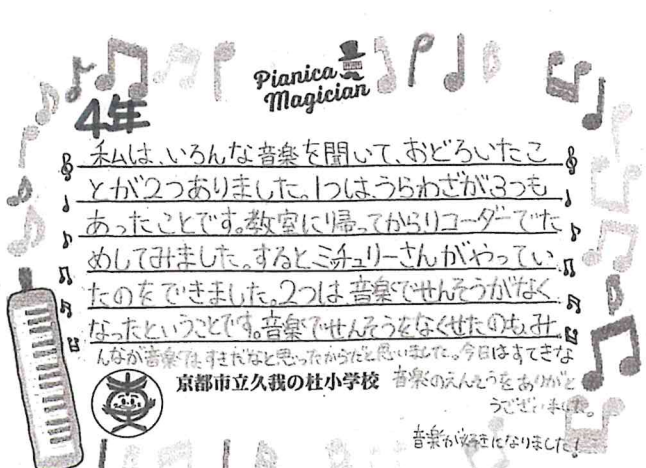 Pianica
Magician
4年
私は、いろんな音楽を聞いて、おどろいたこ
とが2つありました。1つは、うらわざが3つも
あったことです。教室に帰ってからリコーダーでた
めしてみました。すると、ミチュリーさんがやってい
たのをできました。2つは、音楽でせんそうがなく
なったということです。音楽でせんそうをなくせたのも、み
んなが音楽て、すきだなと思ったからだと思いました。今日はすてきな
京都市立久我の杜小学校 音楽のえんそうをありがと
うございました。
音楽が好きになりました!